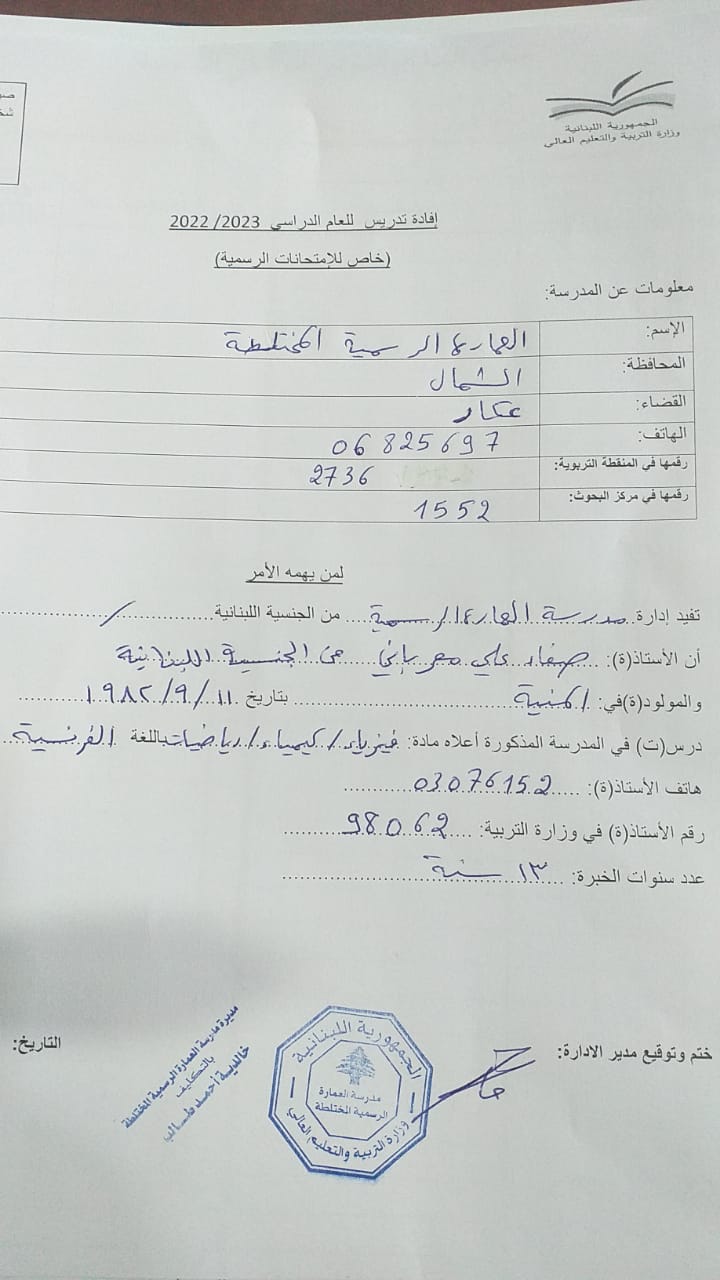 صو
شخ
الجمهورية اللبنانية
وزارة التربية والتعليم العالي
إفادة تدريس للعام الدراسي 2023/ 2022
(خاص للإمتحانات الرسمية)
معلومات عن المدرسة:
الإسم: العمارة الرسمية المختلطة
المحافظة: الشمال
القضاء: عكار
الهاتف: 06 825697
رقمها في المنقطة التربوية: 2736
رقمها في مركز البحوث: 1552
لمن يهمه الأمر
تفيد إدارة مدرسة العمارة الرسمية من الجنسية اللبنانية /
أن الأستاذ(ة): صفاء علي من الجنسية اللبنانية
والمولود(ة)في: المنية بتاريخ ١١/٩/١٩٨٢
درس(ت) في المدرسة المذكورة أعلاه مادة: فيزياء/كيمياء/رياضيات باللغة الفرنسية
هاتف الأستاذ(ة): 03076152
رقم الأستاذ(ة) في وزارة التربية: 98062
عدد سنوات الخبرة: ١٣ سنة
ختم وتوقيع مدير الادارة: التاريخ:
الجمهورية اللبنانية
مدرسة العمارة
الرسمية المختلطة
وزارة التربية والتعليم العالي
مديرة مدرسة العمارة الرسمية المختلطة
بالتكليف
خالدية أحمد طالب